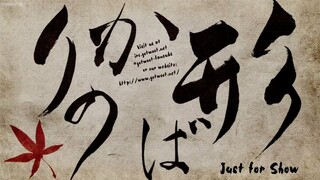 形ばかりの
Visit us at
irc.gotwoot.net
or our website:
http://www.gotwoot.net/
Just for Show